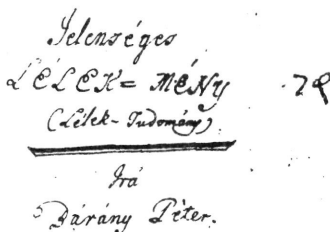 Jelenséges
LÉLEK= MÉNY
(Lélek-Tudomány).
Irá
Bárány Péter.